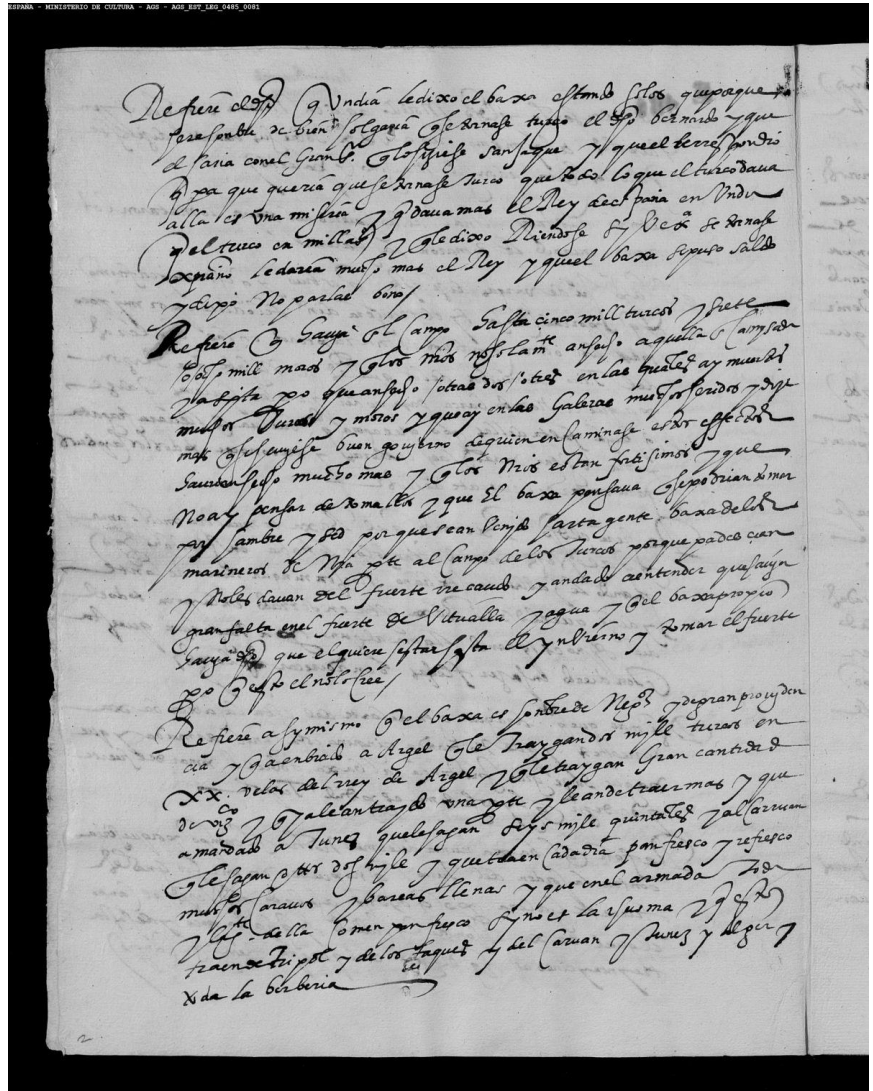 ESPAÑA - MINISTERIO DE CULTURA - AGS - AGS_EST_LEG_0485_0081
Refiere el dho q Un dia le dixo el baxa estando solos que porque
de bien solgaria q se tornase turco el dho bernardo y que
el faria con el Gran S. q lo fiziese sanjaque y que el le rrespondio
q pa que queria que se tornase turco que todo lo que el turco dava
alla es una miseria y q dava mas el Rey despaña en Un dia
q el turco en mill y q le dixo Riendose si Vex.a se tornase
xpiano le daria mucho mas el Rey y que el baxa se puso
y dixo No parlar bono /
Refiere q havia en el Campo hasta cinco mill turcos y siete
o ocho mill moros y q los nros no solam.te an fecho aquella
po que an fecho otras dos o tres en las quales ay muertos
muchos turcos y moros y que ay en las Galeras muchos feridos y dize
mas q si huviese buen govierno de quien encaminase estos effectos
mucho mas y q los nros estan fortisimos y que
No ay pensar de tomallos y que El baxa pensava q se podrian tomar
por hambre y sed porque se an Venido harta gente baxa de los
marineros de Nra pte al Campo de los Turcos porque padescian
y No les davan del fuerte rrecaudo y an dado a entender que havia
gran falta en el fuerte de Vitualla y agua y q el baxa propio
havia dho que el quiere estar hasta el ynvierno y tomar el fuerte
po q esto el no lo cree /
Refiere asy mismo q el baxa es honbre de Neg.os y de gran proviyden
cia y q a enbiado a Argel q le traygan dos mill turcos en
XX. velas del rrey de Argel y q le traygan Gran cantidad
de y q ya le an traydo una pte y le an de traer mas y que
a mandado a Tunez que le hagan seys mill quintales y al Carruan
q le hagan otros dos mill y que traen cada dia pan fresco y refresco
muchos Caravos y barcas llenas y que en el armada toda
y la g.te della Comen pan fresco
traen de Tripol y de los y del Carvan y Tunez y alger y
toda la berberia
2